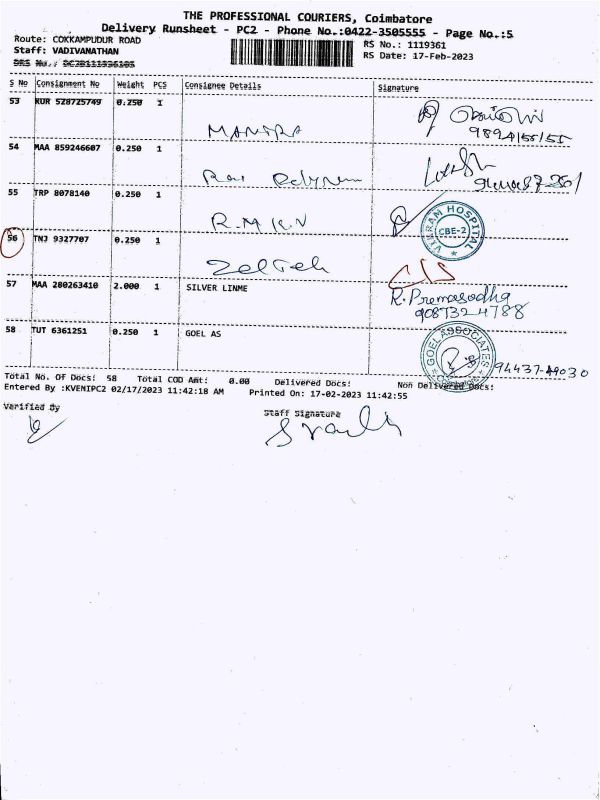 THE PROFESSIONAL COURIERS, Coimbatore
Delivery Runsheet - PC2 - Phone No.:0422-3505555 - Page No.:5
Route: COKKAMPUDUR ROAD
RS No.: 1119361
Staff: VADIVANATHAN
RS Date: 17-Feb-2023
S No Consignment No Weight PCS Consignee Details Signature
53 KUR 528725749 0.250 1
MANTRA
54 MAA 859246607 0.250 1
55 TRP 8078140 0.250 1
R.M K.V
VIKRAM HOSPITAL
CBE-2
56 TNJ 9327707 0.250 1
57 MAA 280263410 2.000 1 SILVER LINME
R. Premasodha
9087324788
58 TUT 6361251 0.250 1 GOEL AS
GOEL ASSOCIATES
Coimbatore
94437-49030
Total No. Of Docs: 58 Total COD Amt: 0.00 Delivered Docs: Non Delivered Docs:
Entered By :KVENIPC2 02/17/2023 11:42:18 AM Printed On: 17-02-2023 11:42:55
Verified By
Staff Signature